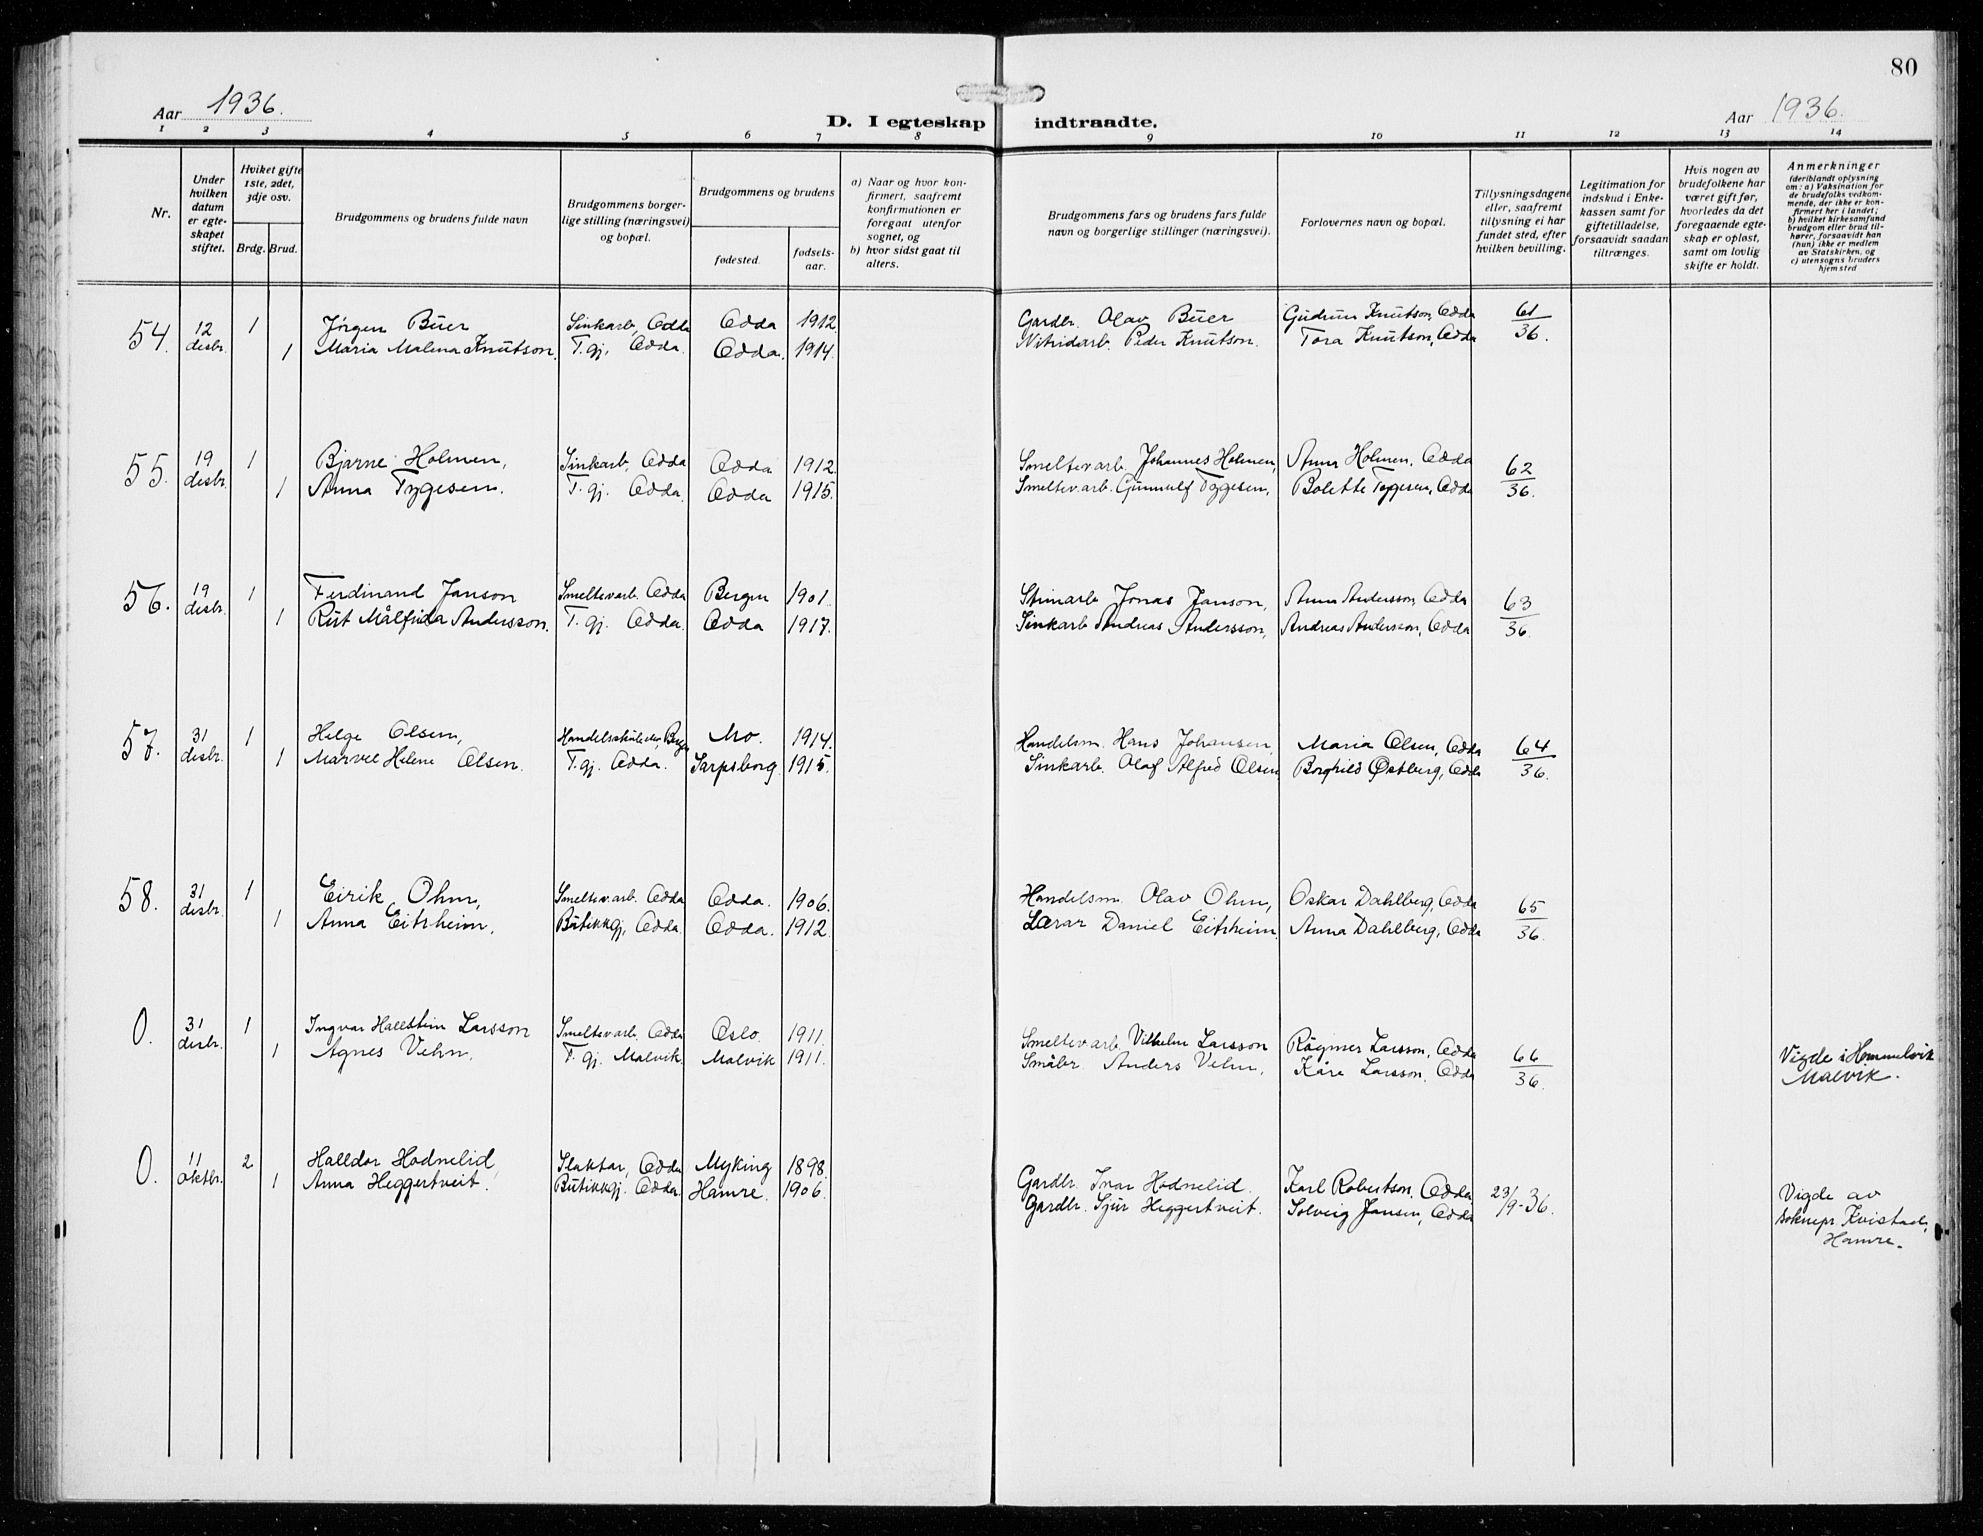 80
Aar 1936.
D. I egteskap indtraadte.
Aar 1936.
1 2 3 4 5 6 7 8 9 10 11 12 13 14
Nr.
Under hvilken datum er egteskapet stiftet.
Hviket gifte 1ste, 2det, 3dje osv.
Brdg. Brud.
Brudgommens og brudens fulde navn
Brudgommens borgerlige stilling (næringsvei) og bopæl.
Brudgommens og brudens
fødested.
fødselsaar.
a) Naar og hvor konfirmert, saafremt konfirmationen er foregaat utenfor sognet, og
b) hvor sidst gaat til alters.
Brudgommens fars og brudens fars fulde navn og borgerlige stillinger (næringsvei).
Forlovernes navn og bopæl.
Tillysningsdagene eller, saafremt tillysning ei har fundet sted, efter hvilken bevilling.
Legitimation for indskud i Enkekassen samt for giftetilladelse, forsaavidt saadan tiltrænges.
Hvis nogen av brudefolkene har været gift før, hvorledes da det foregaaende egteskap er opløst, samt om lovlig skifte er holdt.
Anmerkninger (deriblandt oplysning om: a) Vaksination for de brudefolks vedkommende, der ikke er konfirmert her i landet; b) hvilket kirkesamfund brudgom eller brud tilhører, forsaavidt han (hun) ikke er medlem av Statskirken, og c) utensogns bruders hjemsted
54. 12 desbr. 1 Jørgen Buer Sinkarb, Odda Odda 1912 Gardbr. Olav Buer Gudrun Knutson, Odda 61
1 Maria Malena Knutson. T. gj, Odda. Odda. 1914. Nitridarb. Peder Knutson. Tora Knutson, Odda 36.
55. 19 desbr. 1 Bjarne Holmen, Sinkarb, Odda Odda 1912. Smeltev.arb. Johannes Holmen, Anna Holmen, Odda 62
1 Anna Tygesen. T. gj. Odda. Odda 1915. Smeltev.arb. Gunnulf Tygesen, Bolette Tygesen, Odda 36.
56. 19 desbr. 1 Ferdinand Janson Smeltevarb. Odda Bergen 1901. Jonas Janson, Anna Andersson, Odda 63
1 Rut Målfrida Andersson. T. gj. Odda. Odda 1917. Sinkarb Andreas Andersson, Andreas Andersson, Odda 36.
57. 31 desbr. 1 Helge Olsen, Bergen Mo. 1914. Handelsm. Hans Johansen, Maria Olsen, Odda 64
1 Helene Olsen. T. gj. Odda. Sarpsborg. 1915. Sinkarb. Olaf Alfred Olsen Borghild Østberg, Odda 36.
58. 31 desbr. 1 Eirik Ohm, Smeltev.arb. Odda Odda. 1906. Handelsm. Olav Ohm, Oskar Dahlberg, Odda 65
1 Anna Eitrheim. Butikkgj, Odda. Odda. 1912. Lærar Daniel Eitrheim. Anna Dahlberg, Odda 36.
0. 31 desbr. 1 Ingvar Hallstein Larsson Smeltevarb. Odda Oslo. 1911. Smeltevarb. Vilhelm Larsson Ragnar Larsson, Odda 66
1 Agnes Vehn. T. gj. Malvik. Malvik 1911. Småbr. Anders Vehn. Kåre Larsson. Odda 36. Vigde i Hommelvik
Malvik.
0. 11 oktbr. 2 Halldor Hodnelid, Slaktar, Odda Myking 1898. Gardbr. Ivar Hodnelid. Karl Robertson, Odda 23/9-36.
1 Anna Heggertveit. Butikkgj. Odda. Hamre. 1906. Gardbr. Sjur Heggertveit. Solveig Jansen, Odda Vigde av
soknepr Kvistad,
Hamre.